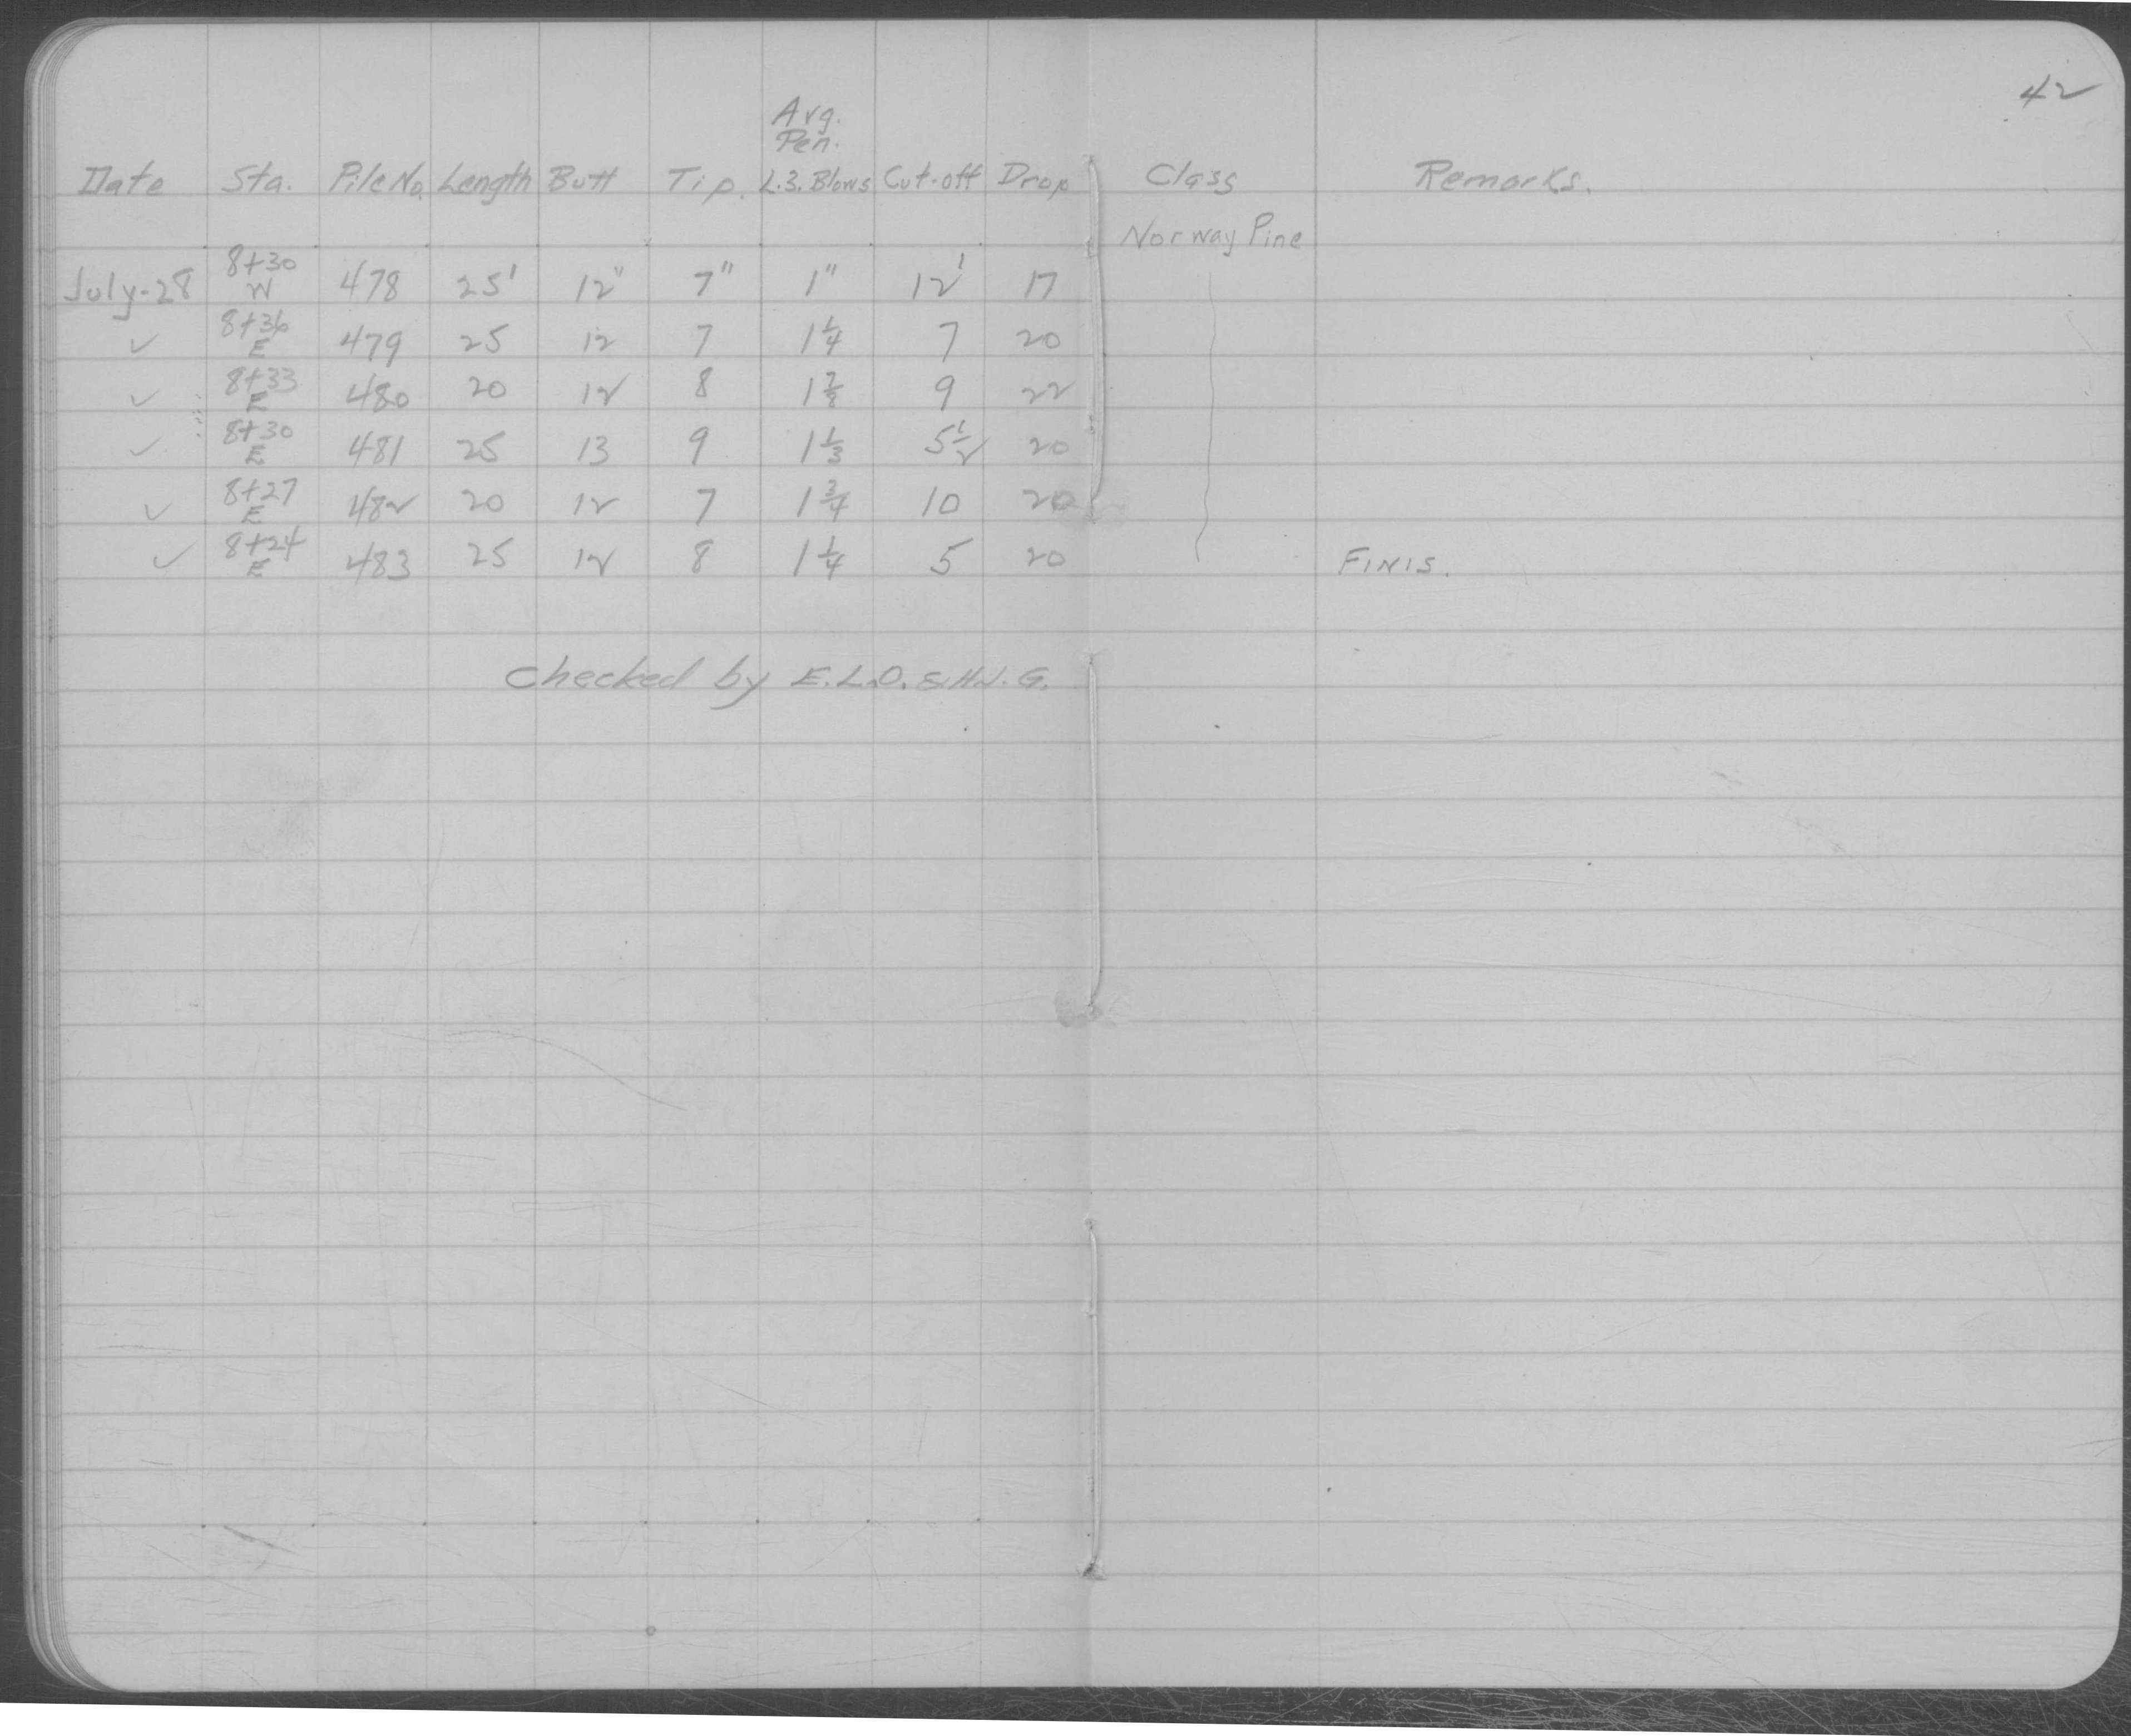 42
Avg.
Pen.
Date Sta. Pile No. Length Butt Tip. L.3. Blows Cut-off Drop Class Remarks.
Norway Pine
July-28 8+30 W 478 25' 12" 7" 1" 12' 17
✓ 8+36 E 479 25 12 7 1 1/4 7 20
✓ 8+33 E 480 20 12 8 1 7/8 9 22
✓ 8+30 E 481 25 13 9 1 1/3 5 1/2 20
✓ 8+27 E 482 20 12 7 1 3/4 10 20
✓ 8+24 E 483 25 12 8 1 1/4 5 20 FINIS.
Checked by E.L.O. & H.J.G.